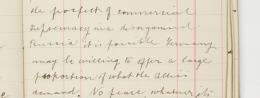 the prospect of commercial
supremacy in a disorganised
Russia it is possible Germany
may be willing to offer a large
proportion of what the Allies
demand. No peace whatever